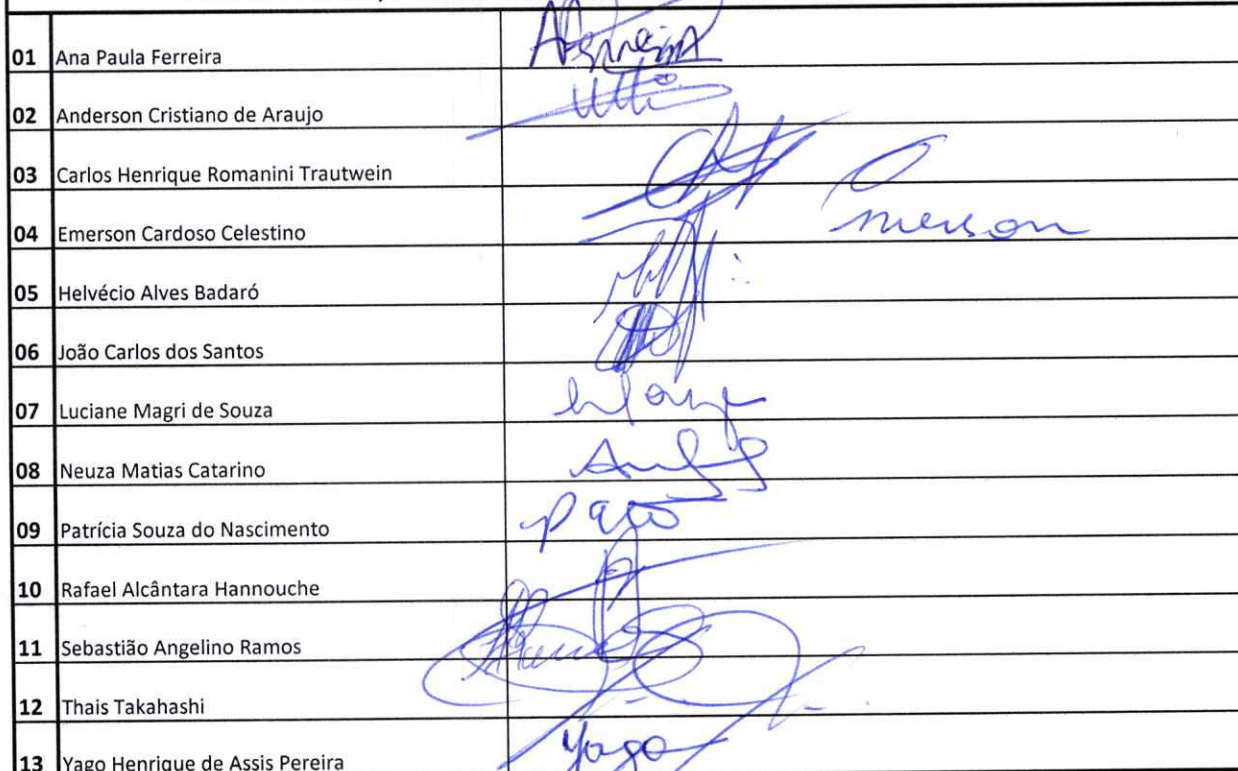 01 Ana Paula Ferreira
02 Anderson Cristiano de Araujo
03 Carlos Henrique Romanini Trautwein
04 Emerson Cardoso Celestino Emerson
05 Helvécio Alves Badaró
06 João Carlos dos Santos
07 Luciane Magri de Souza
08 Neuza Matias Catarino
09 Patrícia Souza do Nascimento
10 Rafael Alcântara Hannouche
11 Sebastião Angelino Ramos
12 Thais Takahashi
13 Yago Henrique de Assis Pereira Yago